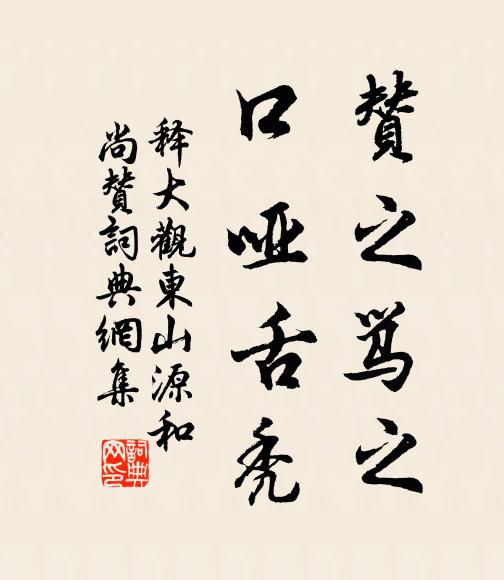 贊之骂之
口哑舌秃
释大觀東山源和
尚贊詞典網集
詞典网印